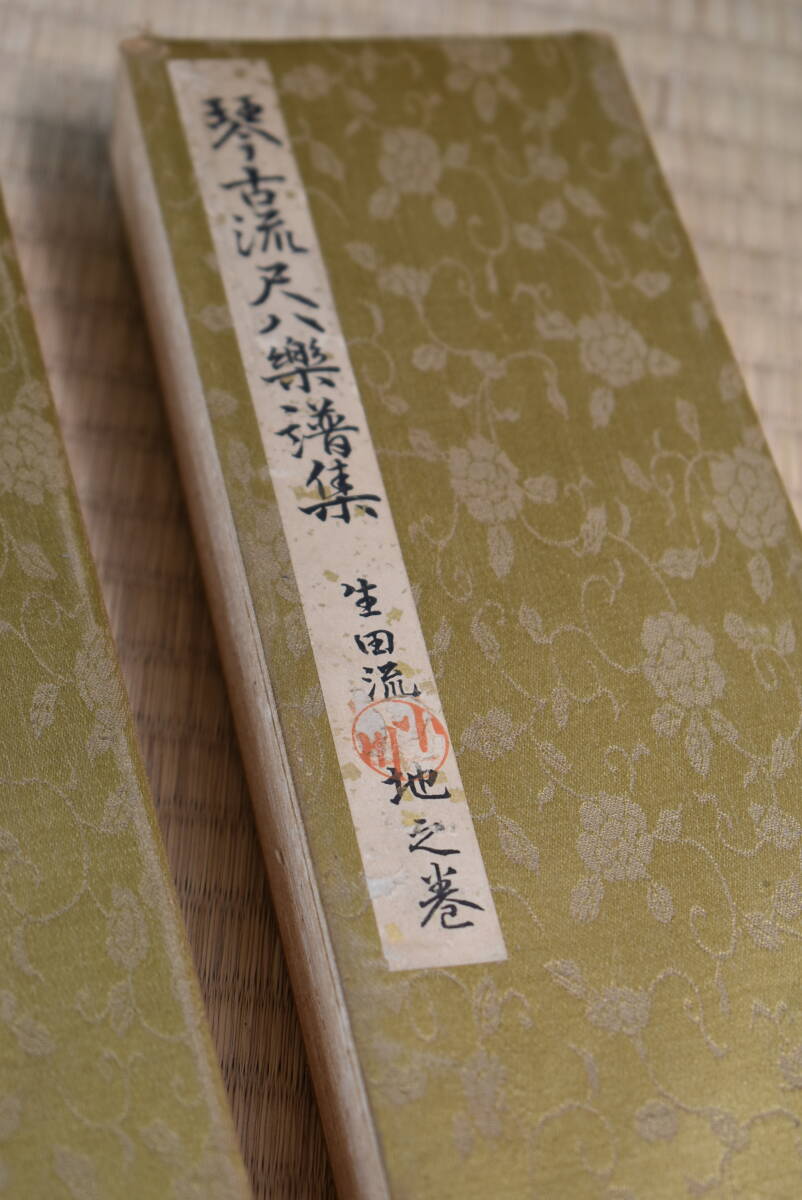 琴古流尺八樂譜集
生田流
地之巻
小川